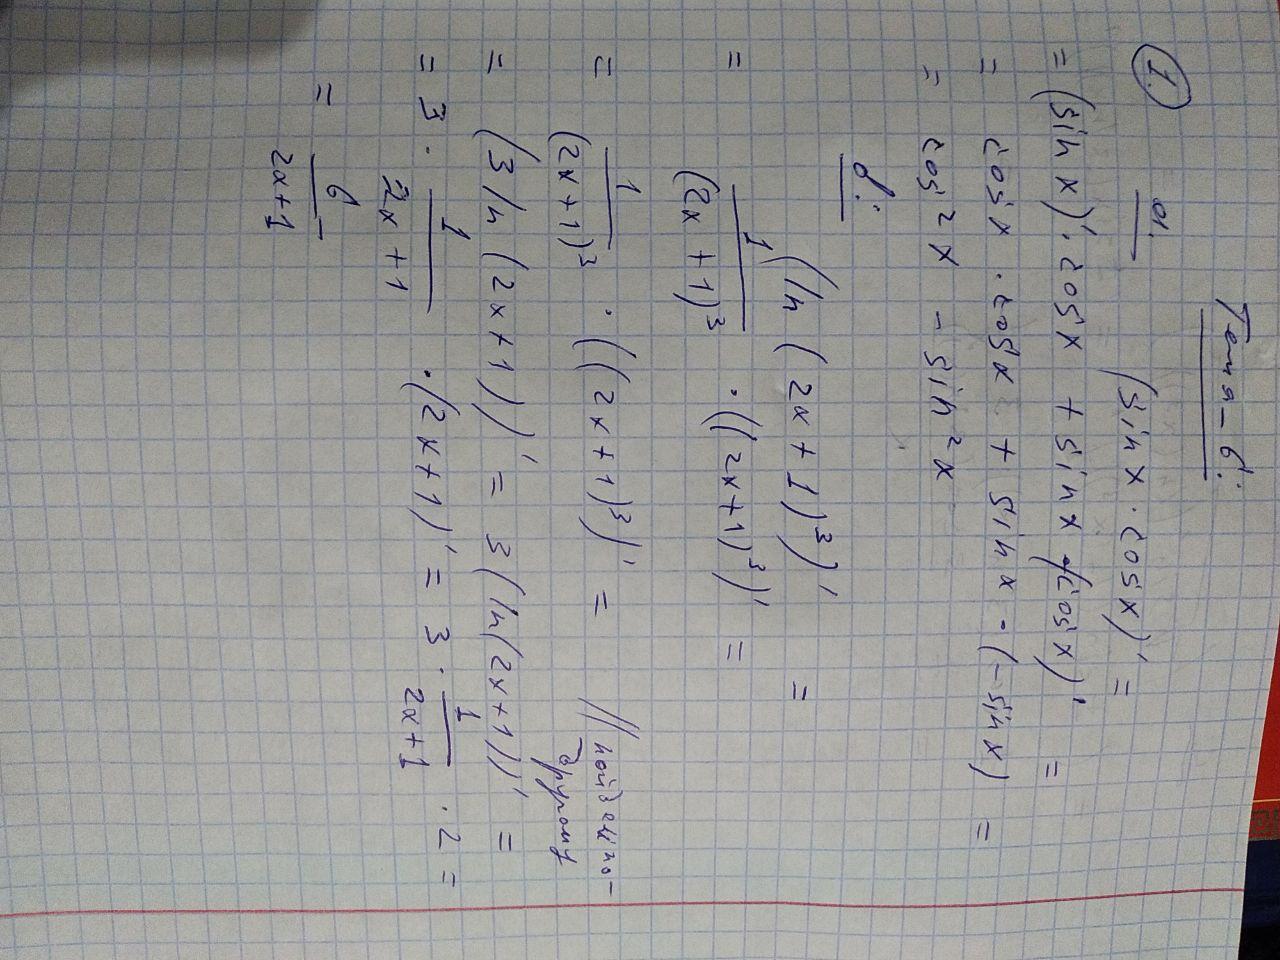 Тема-6:
1. а. (sin x · cos x)' =
= (sin x)' · cos x + sin x · (cos x)' =
= cos x · cos x + sin x · (- sin x) =
= cos² x - sin² x
б:
(ln (2x + 1)³)' =
= 1/(2x + 1)³ · ((2x+1)³)' =
= 1/(2x+1)³ · ((2x+1)³)' = // пойдем по-
другому
= (3 ln (2x+1))' = 3 (ln(2x+1))' =
= 3 · 1/(2x + 1) · (2x+1)' = 3 · 1/(2x+1) · 2 =
= 6/(2x+1)